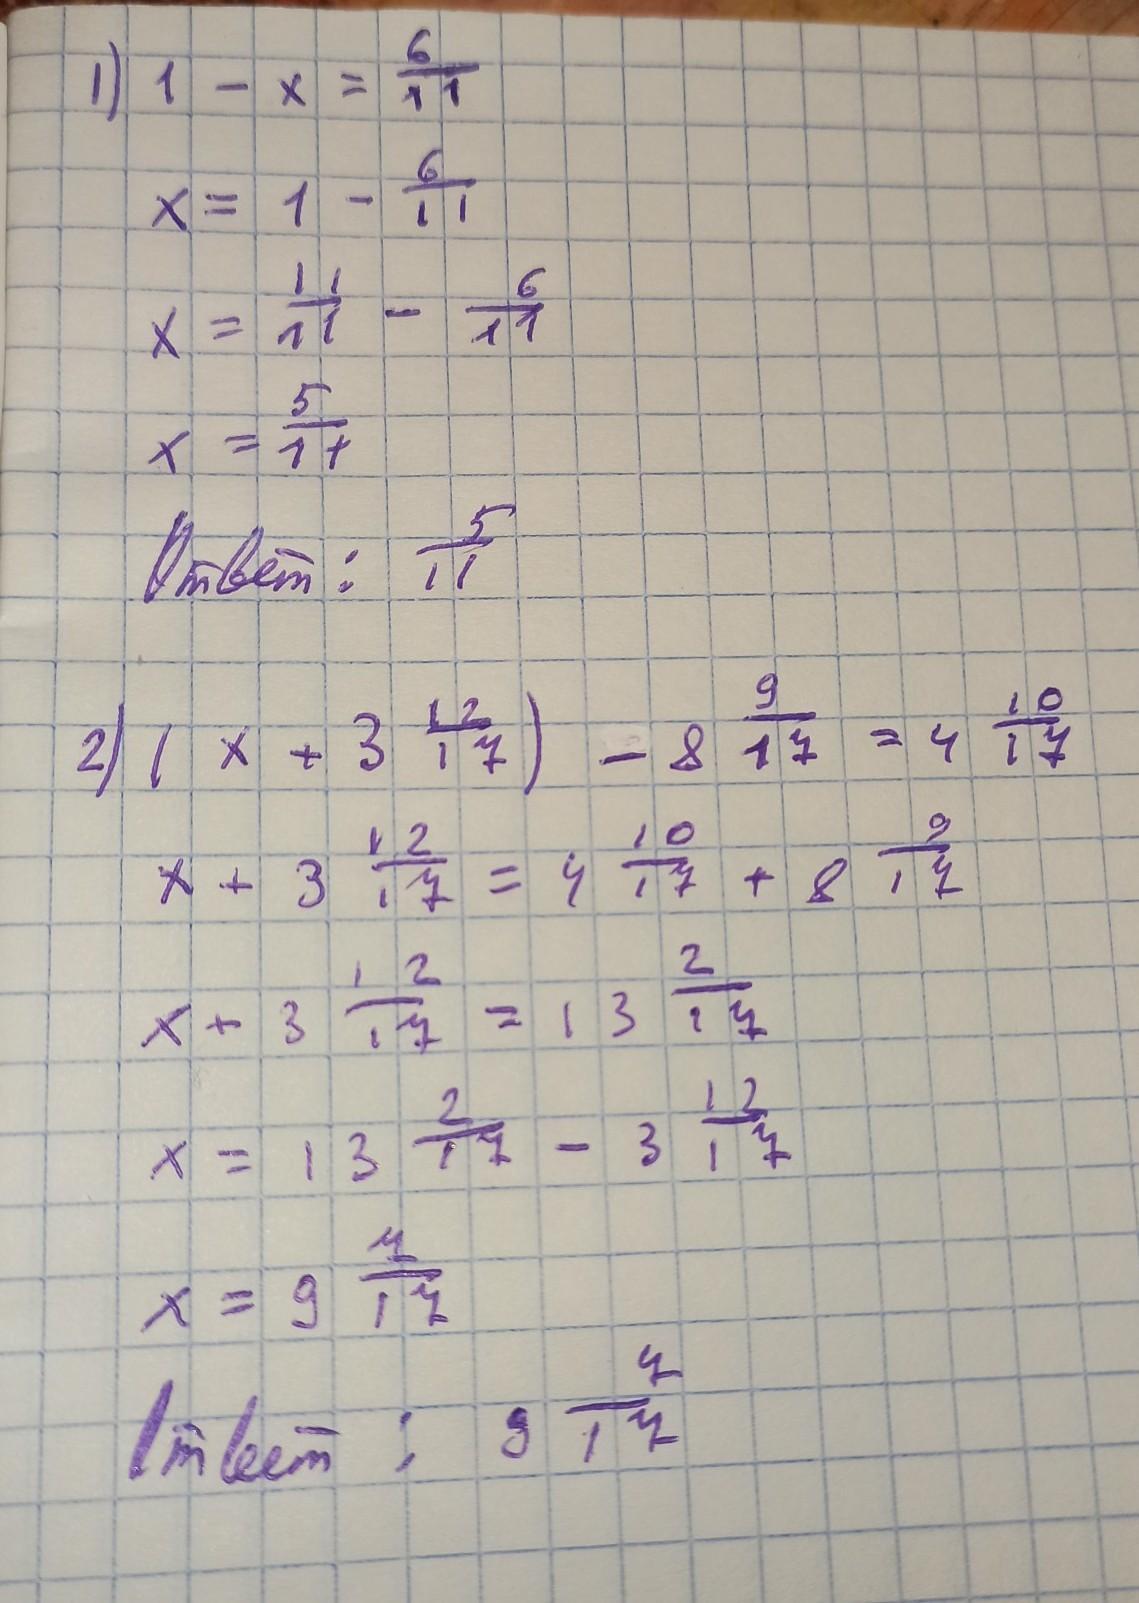 1) 1 - x = 6/11
x = 1 - 6/11
x = 11/11 - 6/11
x = 5/11
Ответ: 5/11
2) ( x + 3 12/17 ) - 8 9/17 = 4 10/17
x + 3 12/17 = 4 10/17 + 8 9/17
x + 3 12/17 = 13 2/17
x = 13 2/17 - 3 12/17
x = 9 7/17
Ответ : 9 7/17